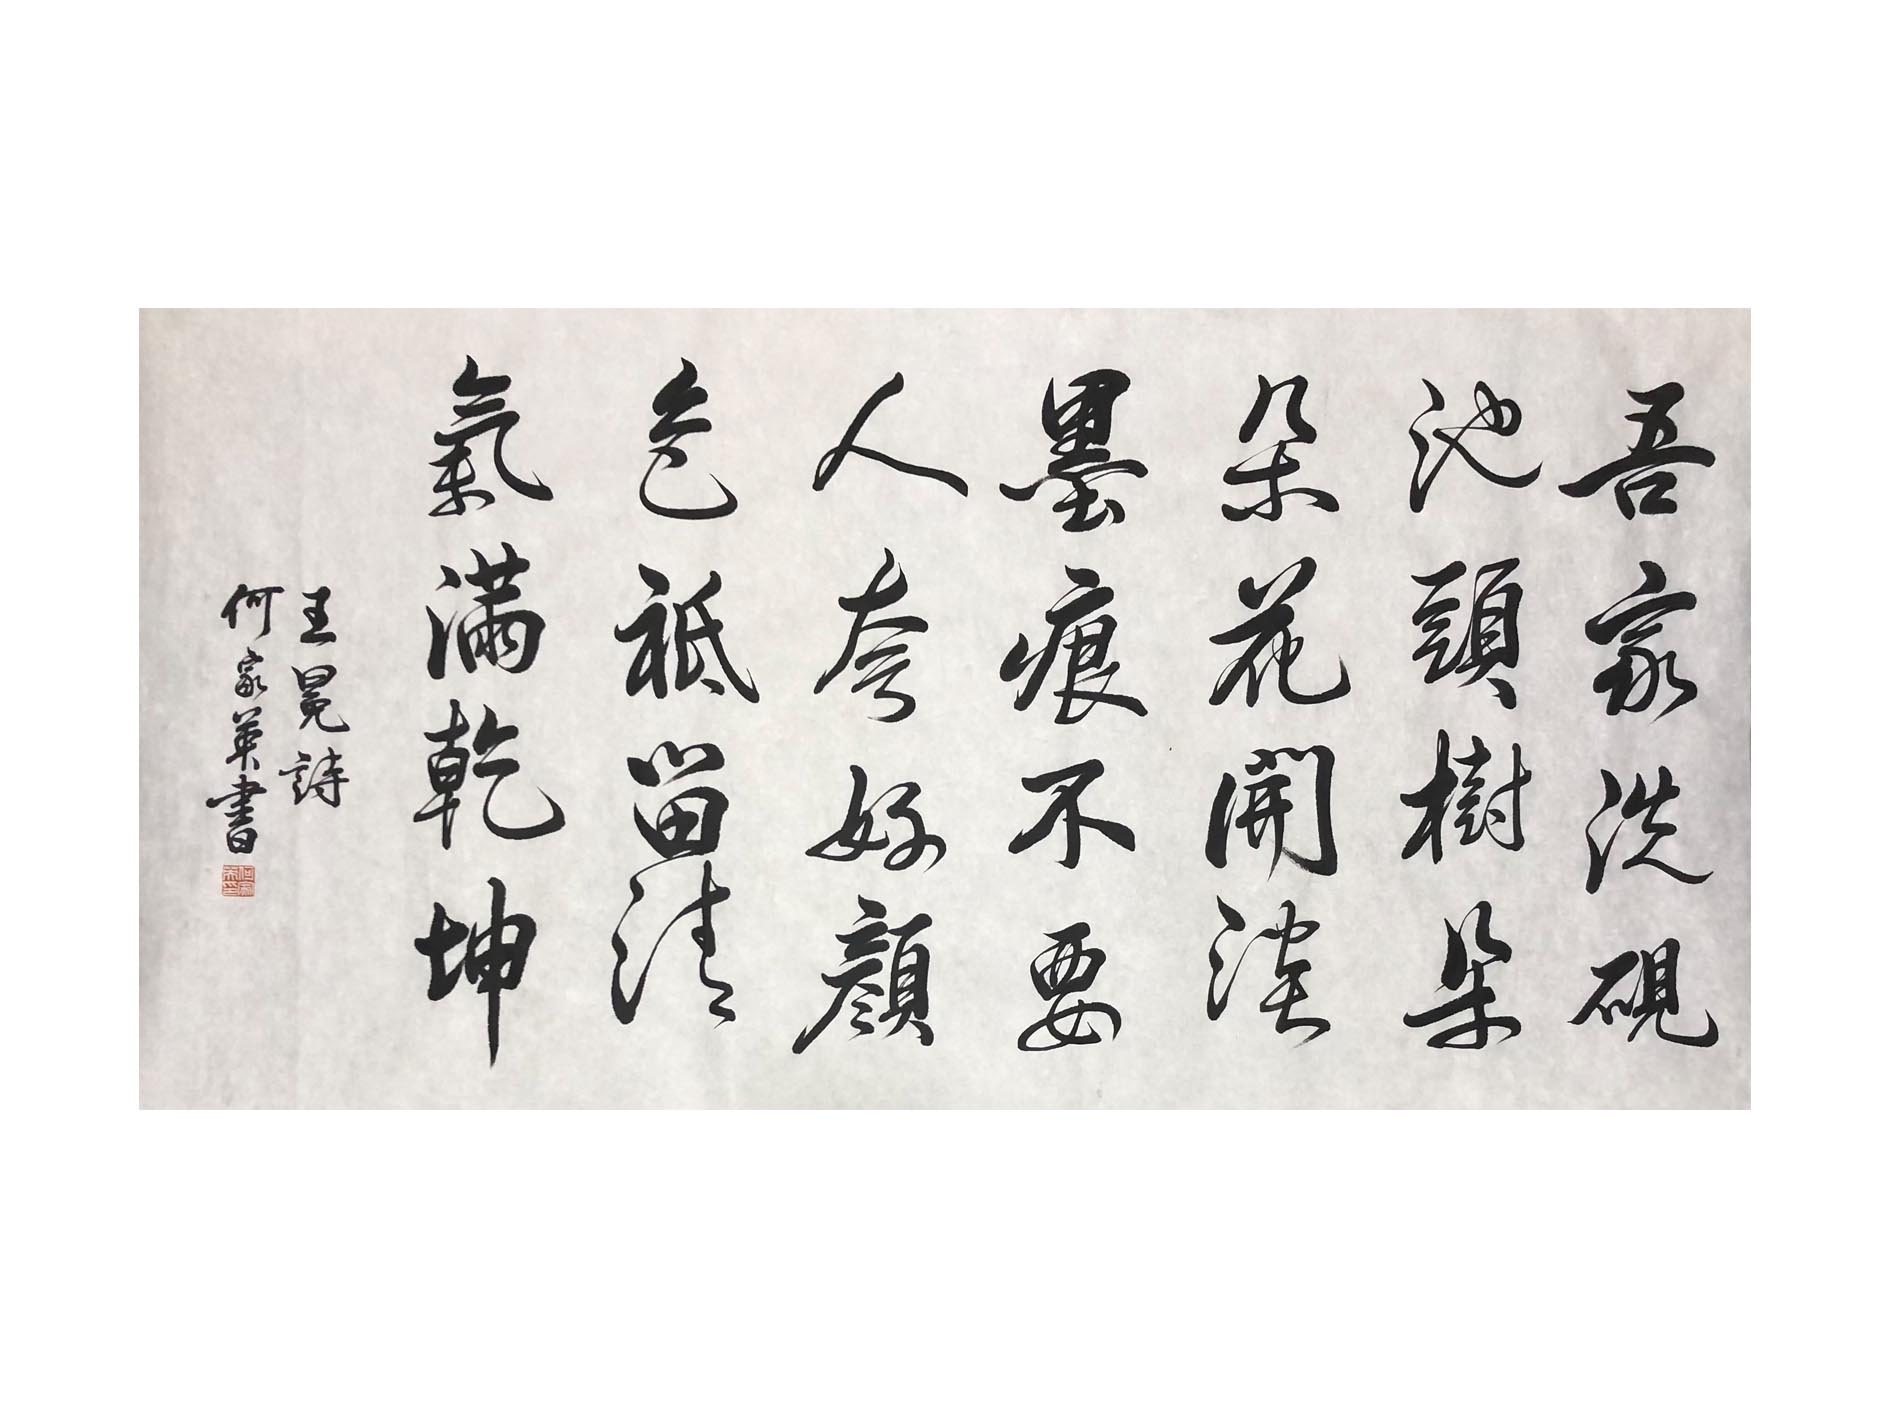 吾家洗硯
池頭樹朵
朵花開淡
墨痕不要
人夸好顏
色祗留清
氣滿乾坤
王冕詩
何家英書